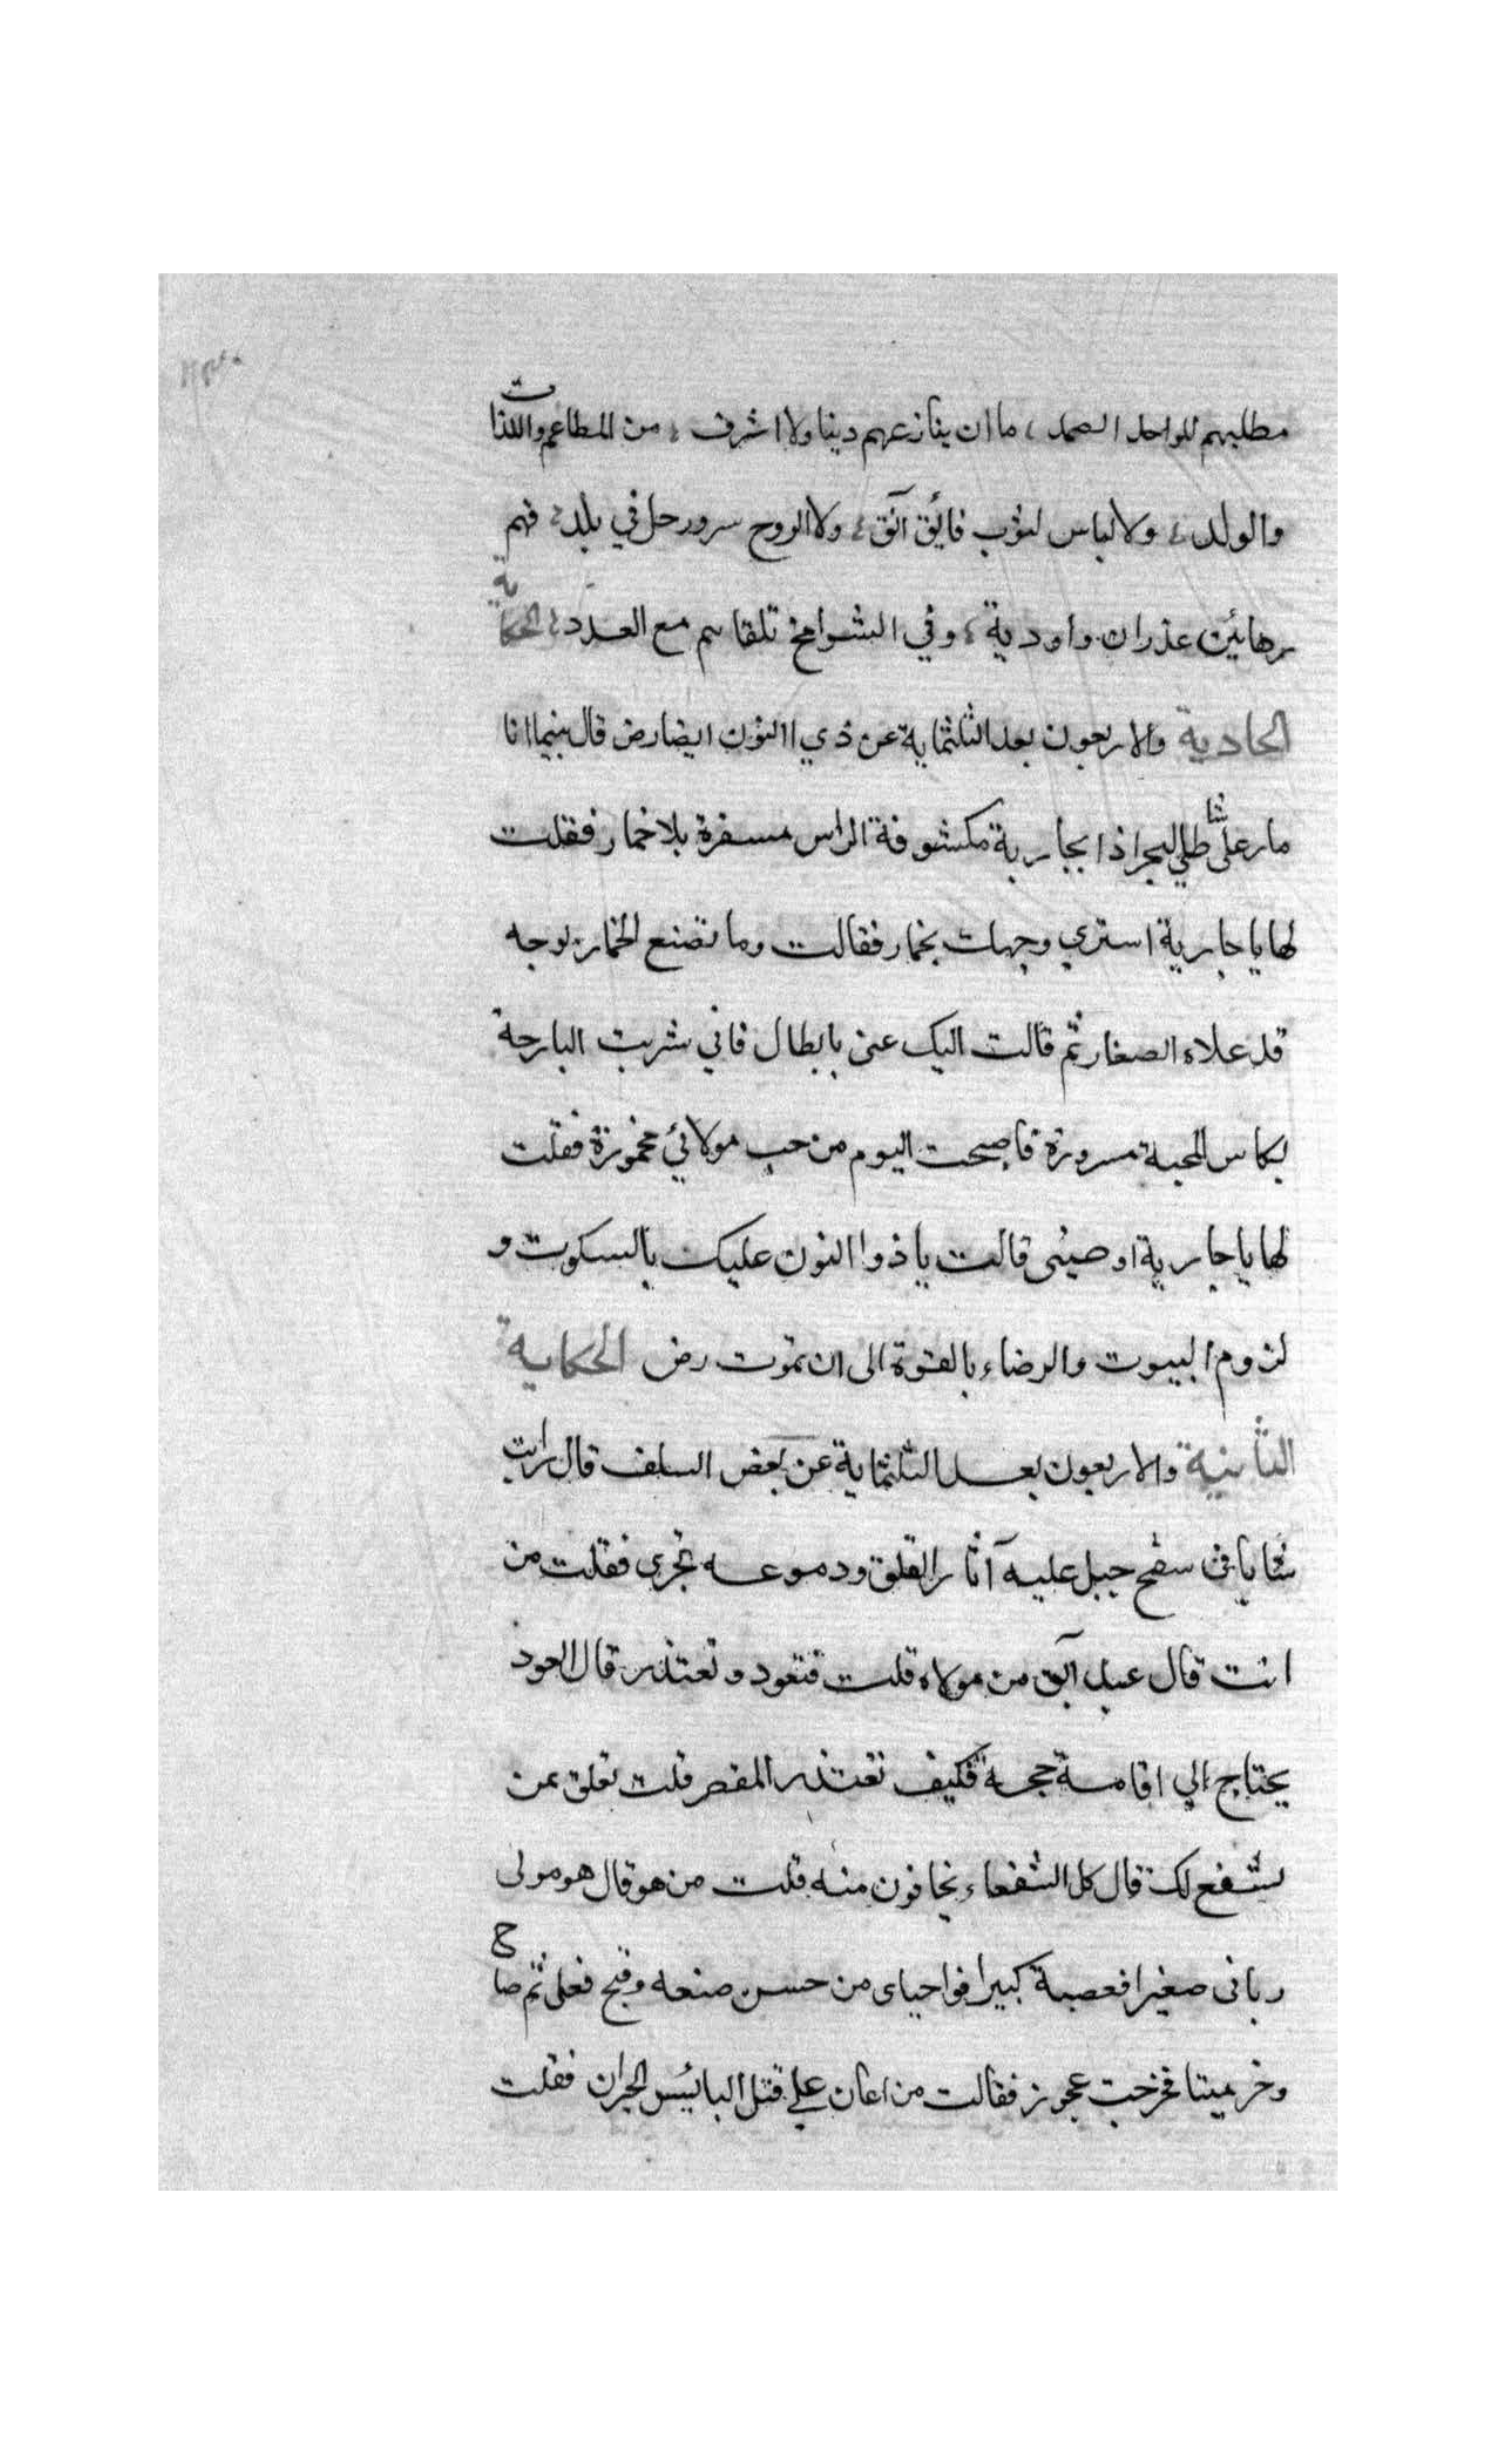 مطلبهم للواحد الصمد ، ما ان ينازعهم دينا ولا اشرف ، من المطاعم واللذات
والولد ، ولا لباس لثوب فائق آنق ، ولا الروح سرور حل في بلد ، فهم
رهائن عذران واودية ، وفي الشوامخ تلقاهم مع العدد ، الحكاية
الحادية والاربعون بعد الثلثماية عن ذي االنون ايضا رض قال بينما انا
مار علي شاطي البحر اذا بجارية مكشوفة الراس مسفرة بلا خمار فقلت
لها يا جارية استري وجهك بخمار فقالت وما تصنع الخمار بوجه
قد علاه الصغار ثم قالت اليك عنى يا بطال فاني شربت البارحة
بكاس المحبة مسرورة فاصبحت اليوم من حب مولائي مخمورة فقلت
لها يا جارية اوصينى قالت يا ذوا النون عليك بالسكوت و
لزوم البيوت والرضاء بالقوة الى ان تموت رض الحكاية
الثانية والاربعون بعد الثلثماية عن بعض السلف قال رايت
شابا فى سفح جبل عليه آثار القلق ودموعه تجرى فقلت من
انت قال عبد آبق من مولاه قلت فتعود وتعتذر قال العود
يحتاج الي اقامة حجة فكيف تعتذر المقصر قلت تعلق بمن
يشفع لك قال كل الشفعاء يخافون منه قلت من هو قال هو مولى
ربانى صغيرا فعصيته كبيرا فواحياى من حسن صنعه وقبح فعلى ثم صاح
وخر ميتا فخرجت عجوز فقالت من اعان علي قتل البائس الحيران فقلت